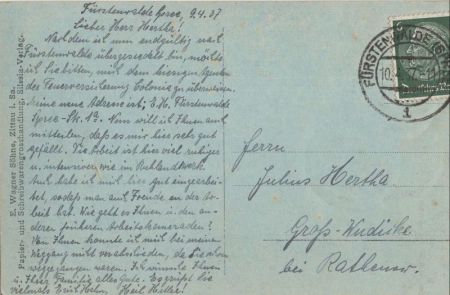 Fürstenwalde
Spree, 9.4.37
Lieber Herr Hertha!
Nachdem ich nun endgültig nach
Fürstenwalde übergesiedelt bin, möchte
ich Sie bitten, mich dem hiesigen Agenten
der Feuerversicherung Colonia zu überweisen.
Meine neue Adresse ist; E.H. Fürstenwalde
Spree - Nun will ich Ihnen auch
mitteilen, daß es mir hier sehr gut
gefällt. Die Arbeit ist hier viel ruhiger
u. intensiver, wie im
Auch habe ich mich hier gut eingearbei-
tet, sodaß man auch Freude an der Ar-
beit hat. Wie geht es Ihnen u. den an-
deren früheren Arbeitskameraden?
Von Ihnen konnte ich mich bei meinem
Weggang nicht verabschieden, da Sie schon
weggegangen waren. Ich wünsche Ihnen
u. Ihrer Familie alles Gute. Es grüßt Sie
vielmals Erich Heil Hitler!
E. Wagner Söhne, Zittau i. Sa.
Papier- und Schreibwarengroßhandlung, Silesia-Verlag.
FÜRSTENWALDE (SPREE)
1
Herrn
Julius Hertha
Groß-Wudicke
bei Rathenow.